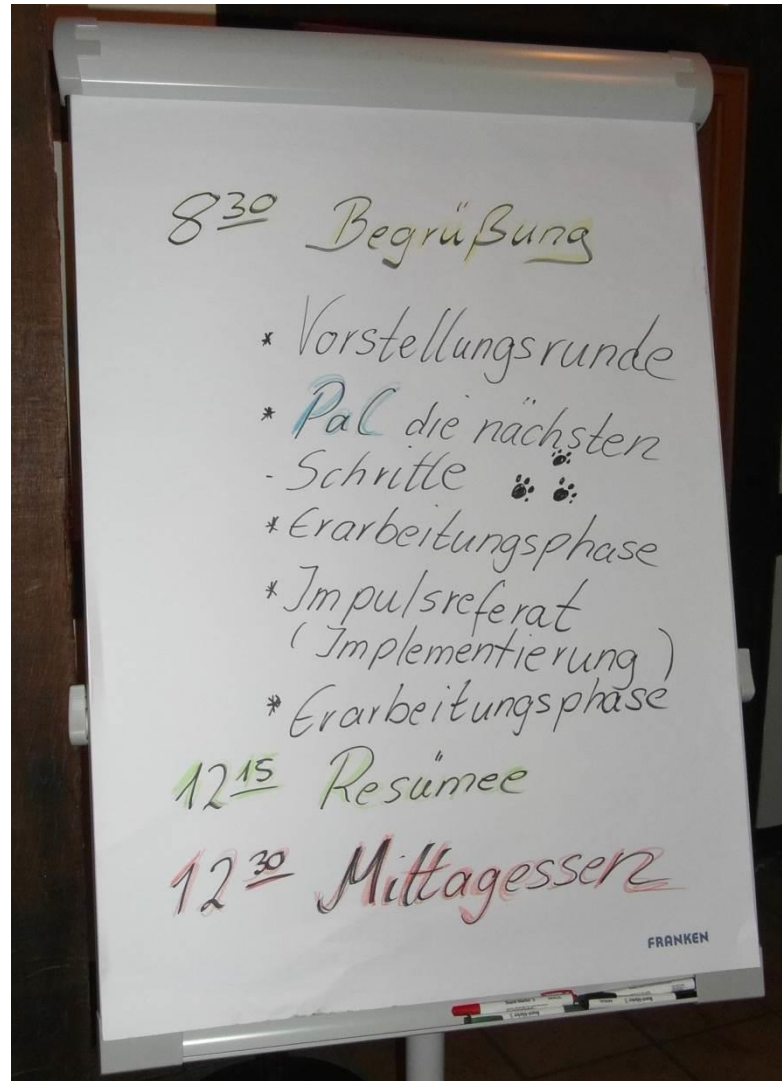 8³⁰ Begrüßung
* Vorstellungsrunde
* PaC die nächsten
- Schritte
* Erarbeitungsphase
* Impulsreferat
(Implementierung)
* Erarbeitungsphase
12¹⁵ Resümee
12³⁰ Mittagessen
FRANKEN